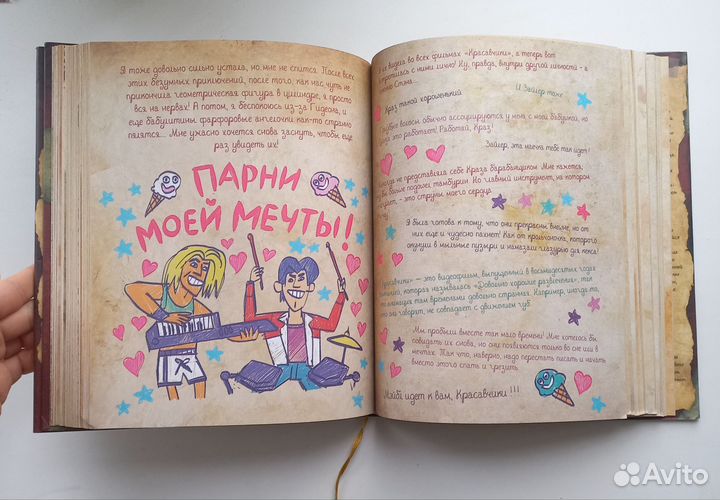 Я тоже довольно сильно устала, но мне не спится. После всех
этих безумных приключений, после того, как нас чуть не
прикончила геометрическая фигура в цилиндре, я просто
вся на нервах! А потом, я беспокоюсь из-за Гидеона, и
еще бабушкины фарфоровые ангелочки как-то странно
пялятся... Мне ужасно хочется снова заснуть, чтобы еще
раз увидеть их!
ПАРНИ
МОЕЙ МЕЧТЫ!
видела во всех фильмах «Красавчики», а теперь вот
с ними лично! Ну, правда, внутри другой личности - а
Стэна...
И Зайлер тоже
Краз такой хорошенький
волосы обычно ассоциируются у меня с моей бабушкой, но
это работает! Работай, Краз!
Зайлер, эта маечка тебе так идет!
не представляла себе Краза барабанщиком. Мне кажется,
больше подошел тамбурин. Но главный инструмент, на котором
играет, - это струны моего сердца
Я была готова к тому, что они прекрасны внешне, но от
них еще и чудесно пахнет! Как от крольчонка, которого
окунули в мыльные пузыри и намазали глазурью для кекса!
«Красавчики» — это видеофильм, выпущенный в восьмидесятых годах
компанией, которая называлась «Довольно хорошие развлечения», так
что анимация там временами довольно странная. Например, иногда то,
что они говорят, не совпадает с движением губ.
Мы пробыли вместе так мало времени! Мне хотелось бы
увидеть их снова, но они появляются только во сне или в
мечтах. Так что, наверно, надо перестать писать и начать
вместо этого спать и грезить
Мэйбл идет к вам, Красавчики!!!
Avito